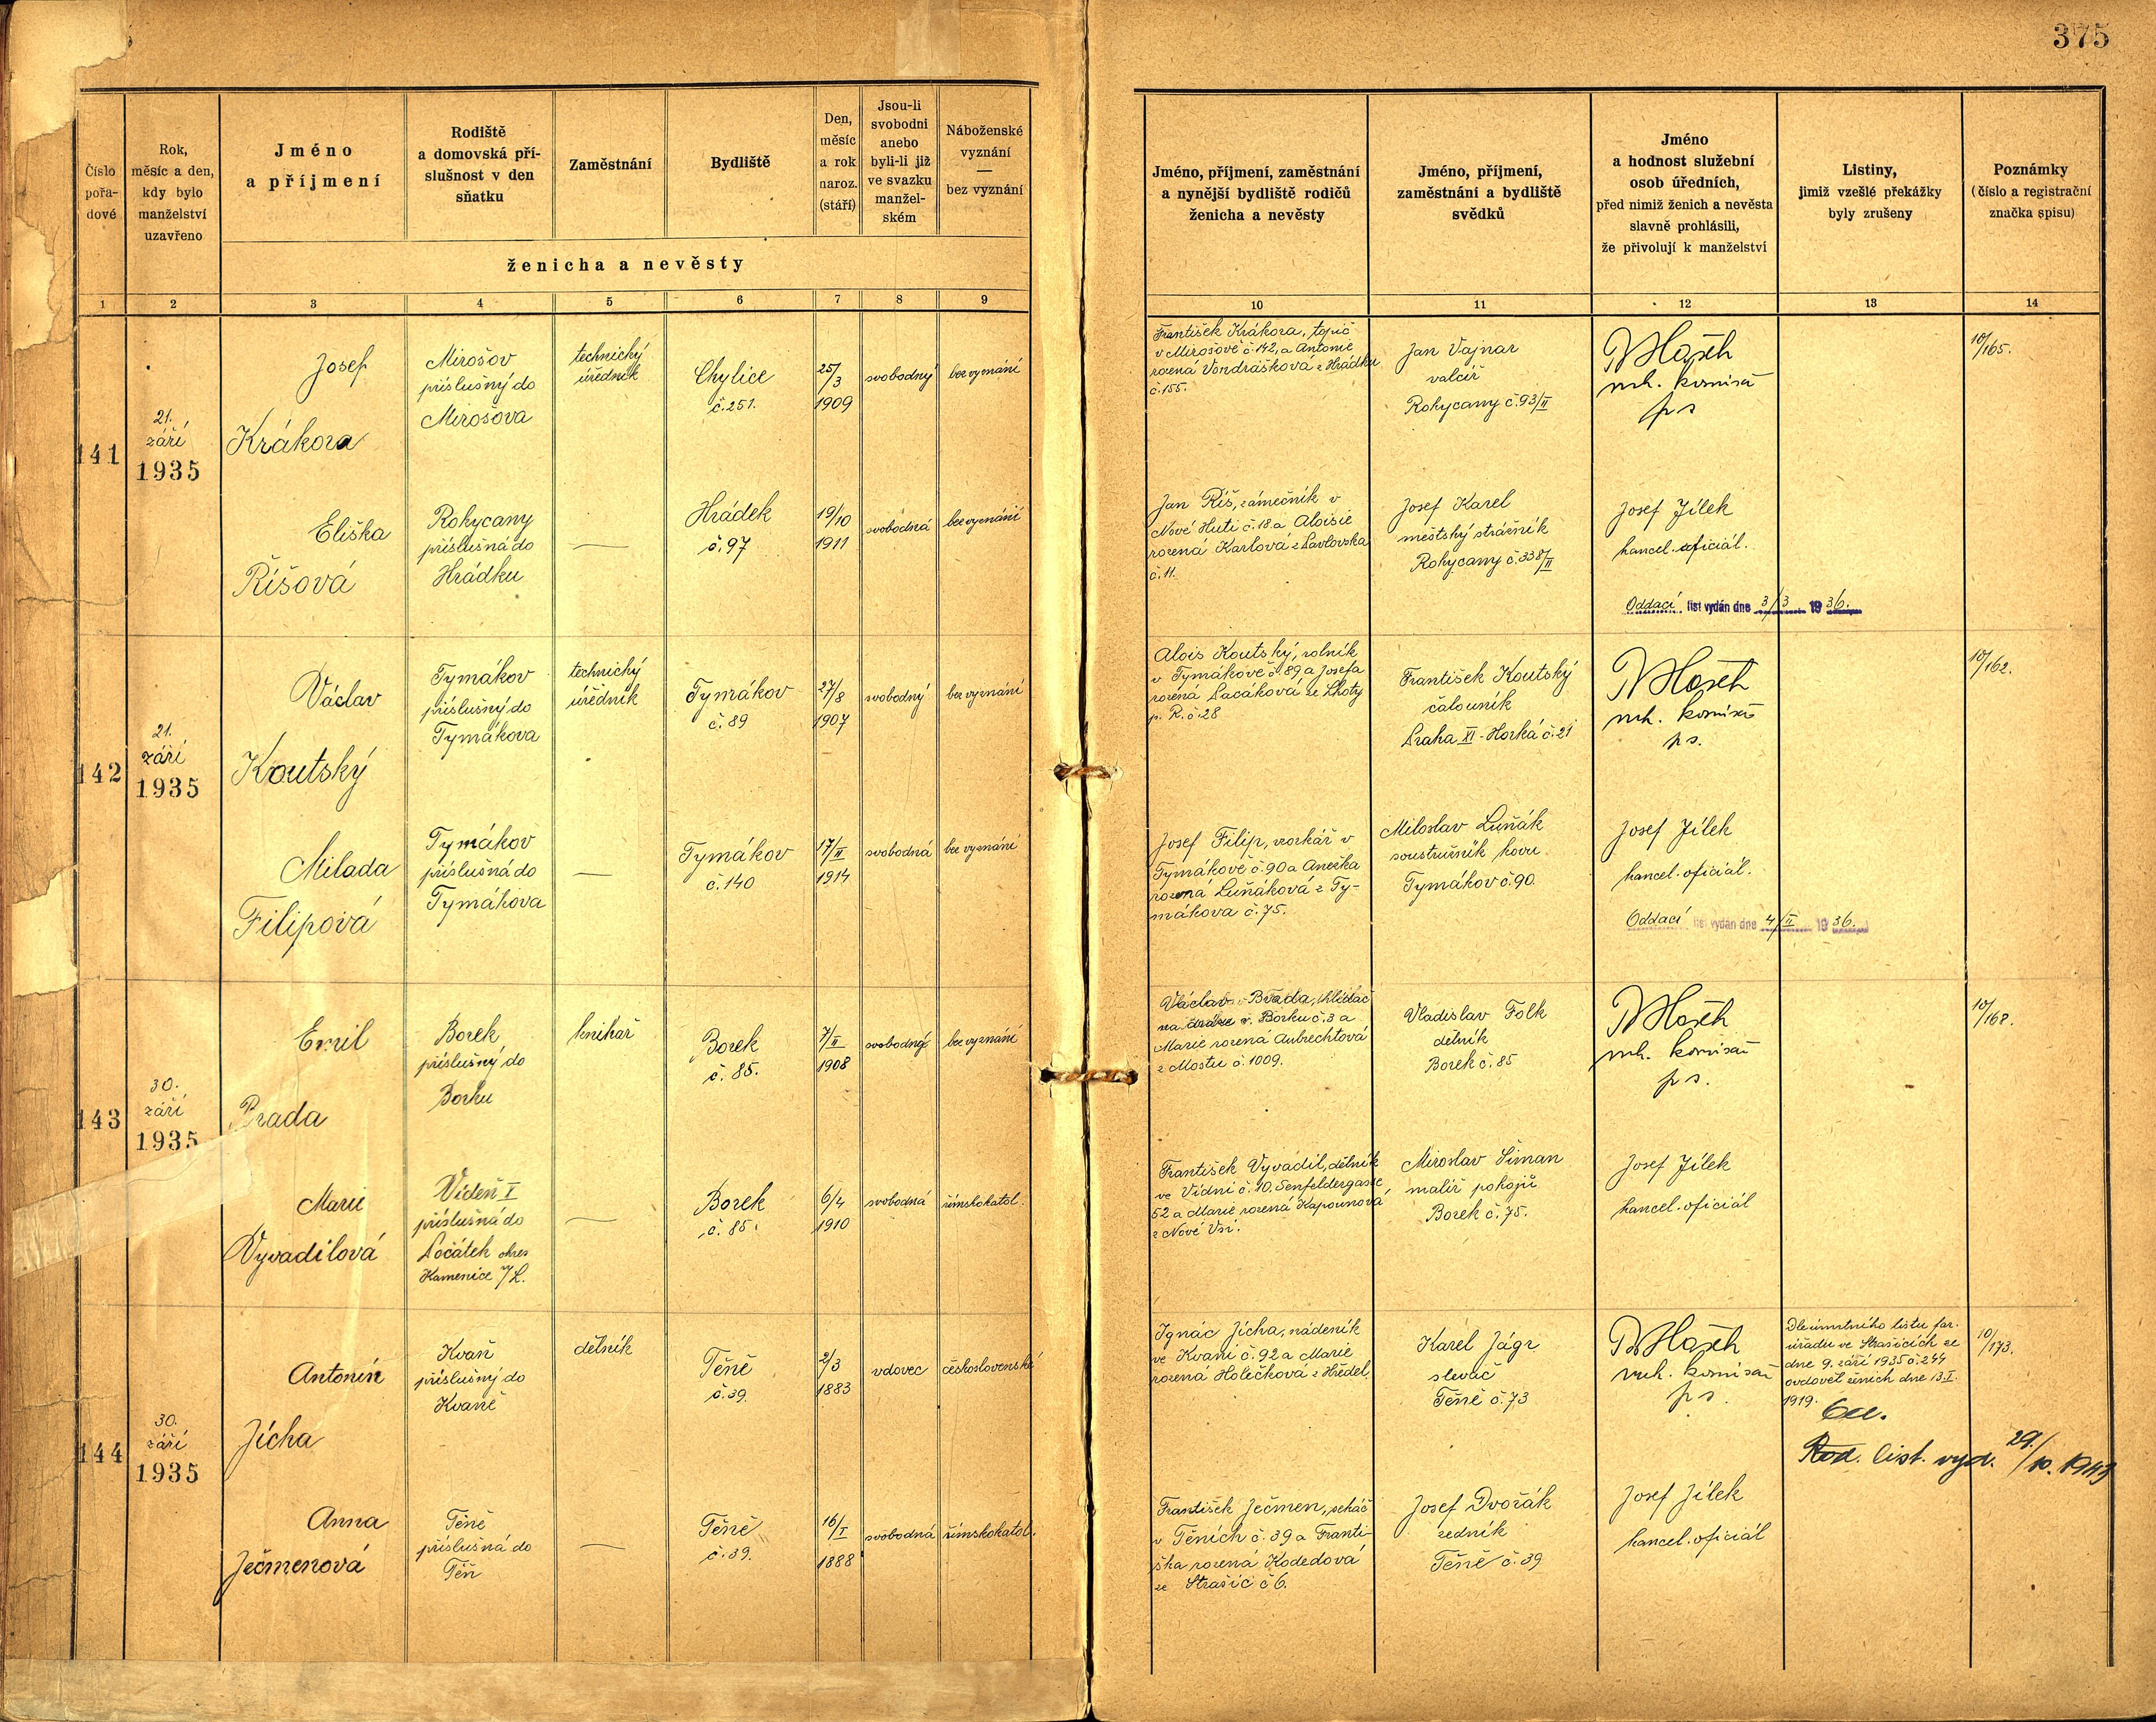 375
Číslo
pořa-
dové
Rok,
měsíc a den,
kdy bylo
manželství
uzavřeno
Jméno
a příjmení
Rodiště
a domovská pří-
slušnost v den
sňatku
Zaměstnání
Bydliště
Den,
měsíc
a rok
naroz.
(stáří)
Jsou-li
svobodni
anebo
byli-li již
ve svazku
manžel-
ském
Náboženské
vyznání
—
bez vyznání
ženicha a nevěsty
Jméno, příjmení, zaměstnání
a nynější bydliště rodičů
ženicha a nevěsty
Jméno, příjmení,
zaměstnání a bydliště
svědků
Jméno
a hodnost služební
osob úředních,
před nimiž ženich a nevěsta
slavně prohlásili,
že přivolují k manželství
Listiny,
jimiž vzešlé překážky
byly zrušeny
Poznámky
(číslo a registrační
značka spisu)
1 2 3 4 5 6 7 8 9 10 11 12 13 14
141
21.
září
1935
Josef
Krákora
Mirošov
příslušný do
Mirošova
technický
úředník
Chylice
č. 251.
25/3
1909
svobodný
bez vyznání
František Krákora, topič
v Mirošově č. 142, a Antonie
rozená Vondrášková z Hrádku
č. 155.
Jan Vajnar
valcíř
Rokycany č. 93/II
komisař
10/165.
Eliška
Říšová
Rokycany
příslušná do
Hrádku
—
Hrádek
č. 97
19/10
1911
svobodná
bez vyznání
Jan Říš, zámečník v
Nové Huti č. 18 a Aloisie
rozená Karlová z Pavlovska
č. 11.
Josef Karel
městský strážník
Rokycany č. 338/II
Josef Jílek
kancel. oficiál.
Oddací list vydán dne 3/3 1936.
142
21.
září
1935
Václav
Koutský
Tymákov
příslušný do
Tymákova
technický
úředník
Tymákov
č. 89
27/8
1907
svobodný
bez vyznání
Alois Koutský, rolník
v Tymákově č. 89 a Josefa
rozená Pacáková ze Lhoty
p. R. č. 28
František Koutský
čalouník
Praha XI - Horká č. 21
komisař
10/162.
Milada
Filipová
Tymákov
příslušná do
Tymákova
—
Tymákov
č. 140
17/II
1914
svobodná
bez vyznání
Josef Filip, vozkář v
Tymákově č. 90 a Anežka
rozená Luňáková z Ty-
mákova č. 75.
Miloslav Luňák
soustružník kovu
Tymákov č. 90.
Josef Jílek
kancel. oficiál.
Oddací list vydán dne 4/II 1936.
143
30.
září
1935
Emil
Brada
Borek
příslušný do
Borku
knihař
Borek
č. 85.
7/II
1908
svobodný
bez vyznání
Václav Brada, hlídač
na dráze v Borku č. 3 a
Marie rozená Aubrechtová
z Mostu č. 1009.
Vladislav Folk
dělník
Borek č. 85
komisař
10/168.
Marie
Vyvadilová
Vídeň I
příslušná do
Počátek okres
Kamenice n/L.
—
Borek
č. 85.
6/4
1910
svobodná
římskokatol.
František Vyvadil, dělník
ve Vídni č. 10. Senfeldergasse
52 a Marie rozená Kapounová
z Nové Vsi.
Miroslav Šiman
malíř pokojů
Borek č. 75.
Josef Jílek
kancel. oficiál
144
30.
září
1935
Antonín
Jícha
Kvaň
příslušný do
Kvaně
dělník
Těně
č. 39.
2/3
1883
vdovec
československé
Ignác Jícha, nádeník
ve Kvani č. 92 a Marie
rozená Holečková z Hředel
Karel Jágr
slevač
Těně č. 73
komisař
Dle úmrtního listu far.
úřadu ve Strašicích ze
dne 9. září 1935 č. 244
ovdověl ženich dne 13.I.
1919.
Rod. list. vyd. 29./10. 1943
10/173.
Anna
Ječmenová
Těně
příslušná do
Těň
—
Těně
č. 39.
16/I
1888
svobodná
římskokatol.
František Ječmen, sekáč
v Těních č. 39 a Franti-
ška rozená Kodedová
ze Strašic č 6.
Josef Dvořák
zedník
Těně č. 39
Josef Jílek
kancel. oficiál